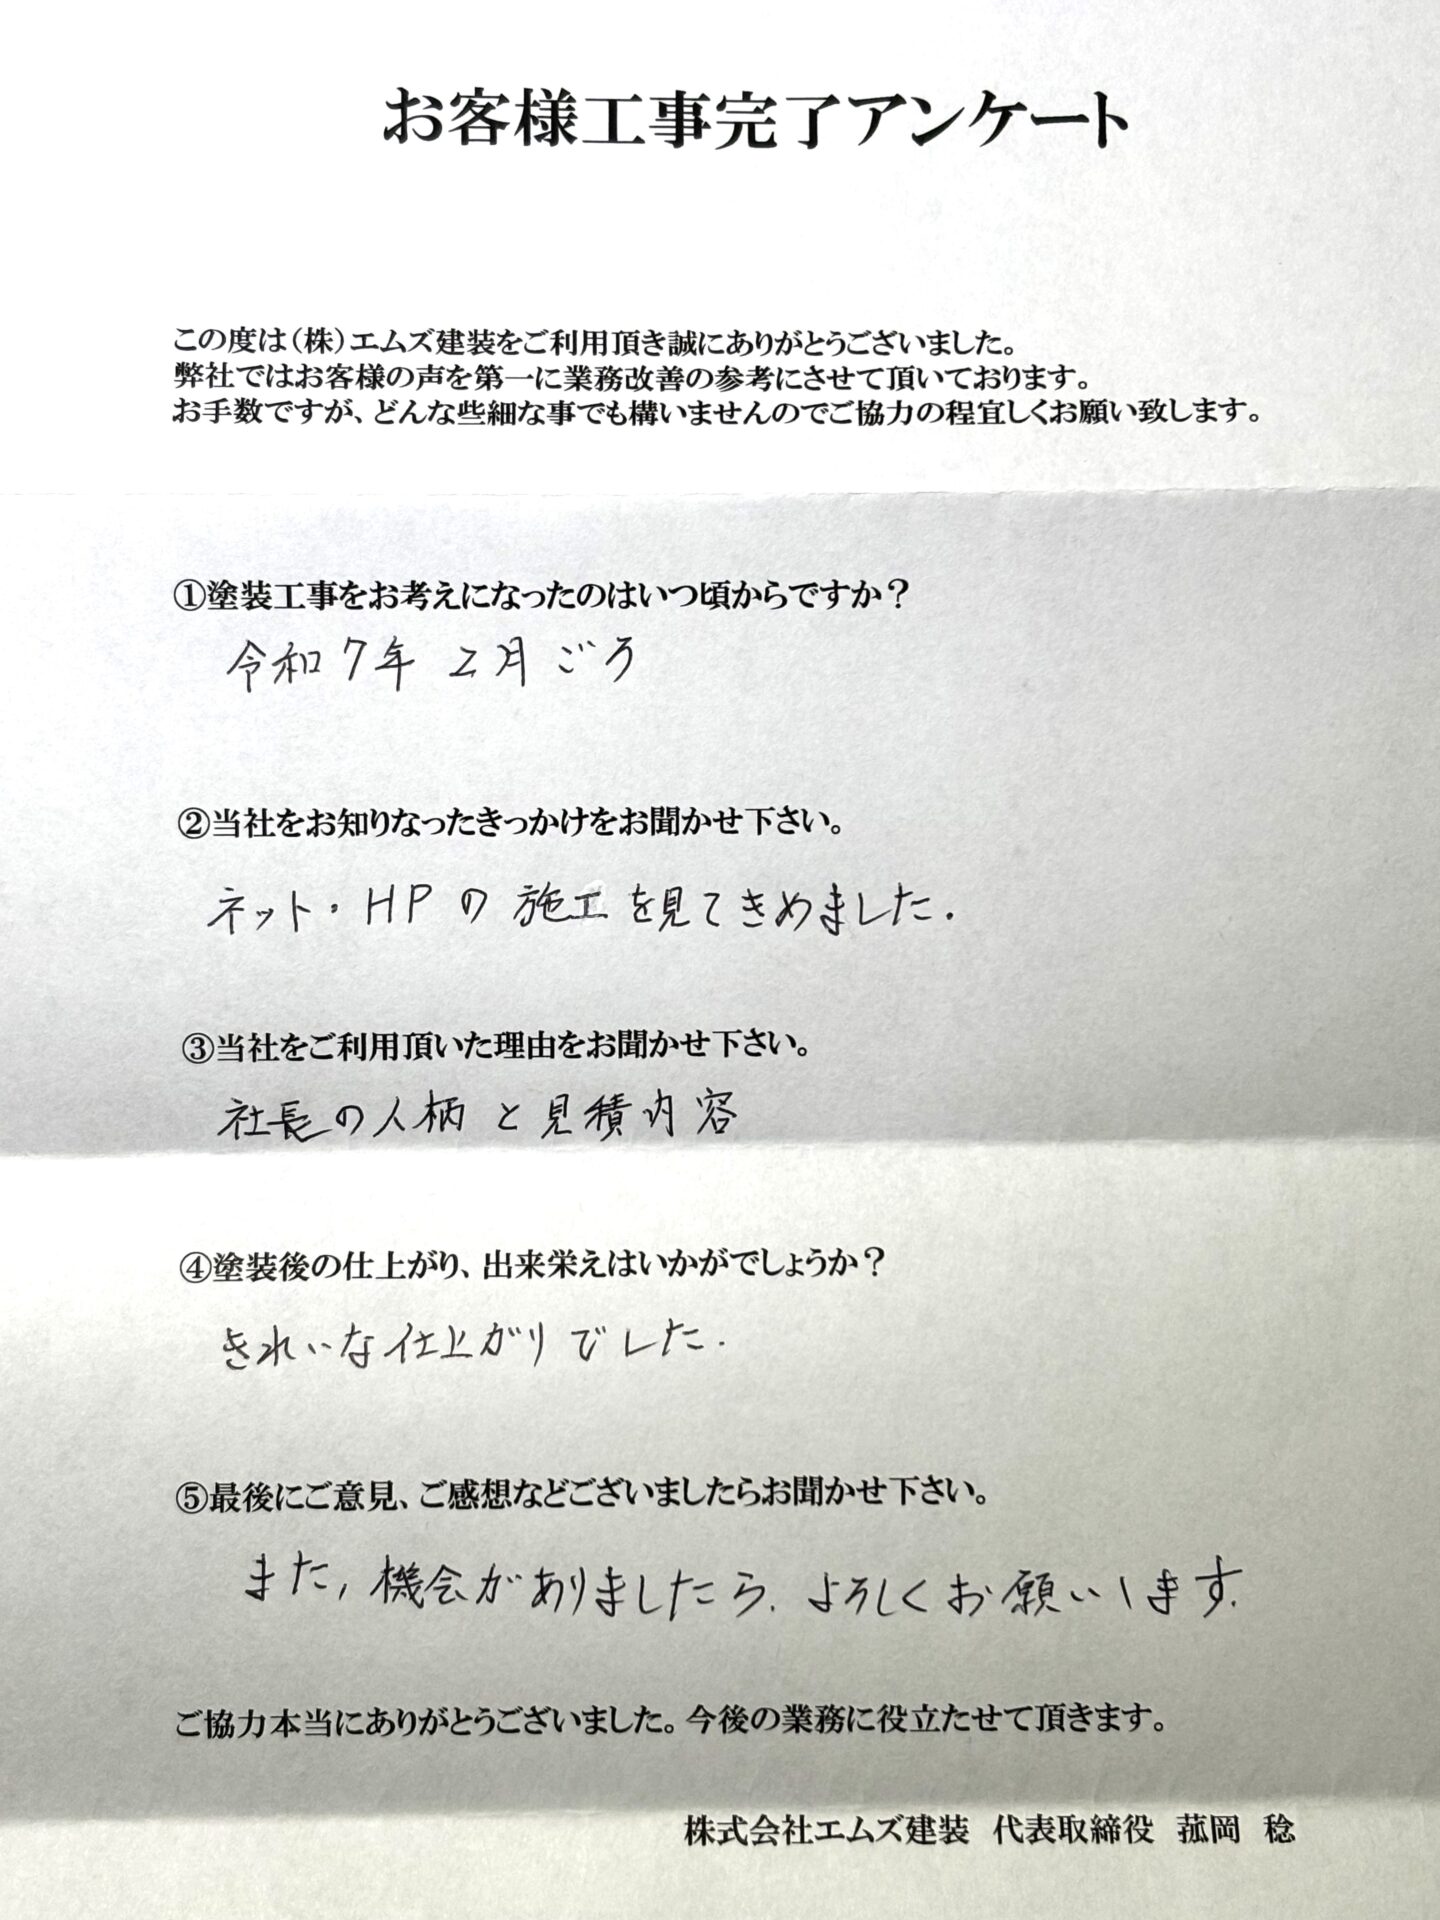 お客様工事完了アンケート
この度は（株）エムズ建装をご利用頂き誠にありがとうございました。
弊社ではお客様の声を第一に業務改善の参考にさせて頂いております。
お手数ですが、どんな些細な事でも構いませんのでご協力の程宜しくお願い致します。
①塗装工事をお考えになったのはいつ頃からですか？
令和7年 2月ごろ
②当社をお知りなったきっかけをお聞かせ下さい。
ネット・HPの施工を見てきめました.
③当社をご利用頂いた理由をお聞かせ下さい。
社長の人柄と見積内容
④塗装後の仕上がり、出来栄えはいかがでしょうか？
きれいな仕上がりでした.
⑤最後にご意見、ご感想などございましたらお聞かせ下さい。
また, 機会がありましたら. よろしくお願いします.
ご協力本当にありがとうございました。今後の業務に役立たせて頂きます。
株式会社エムズ建装 代表取締役 菰岡 稔